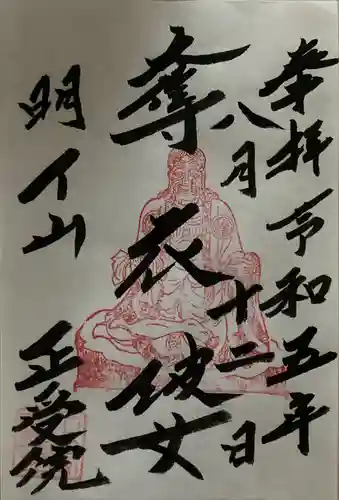 奉拝 令和五年
八月十二日
奪衣婆
明了山
正受院